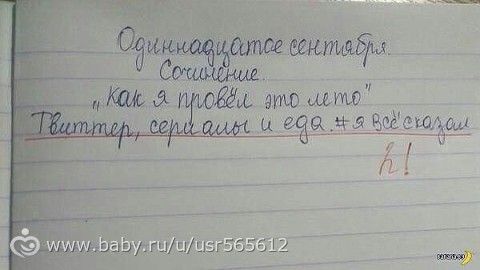 Одиннадцатое сентября.
Сочинение.
„Как я провёл это лето"
Твиттер, сериалы и еда. #я всё сказал
2!
www.baby.ru/u/usr565612